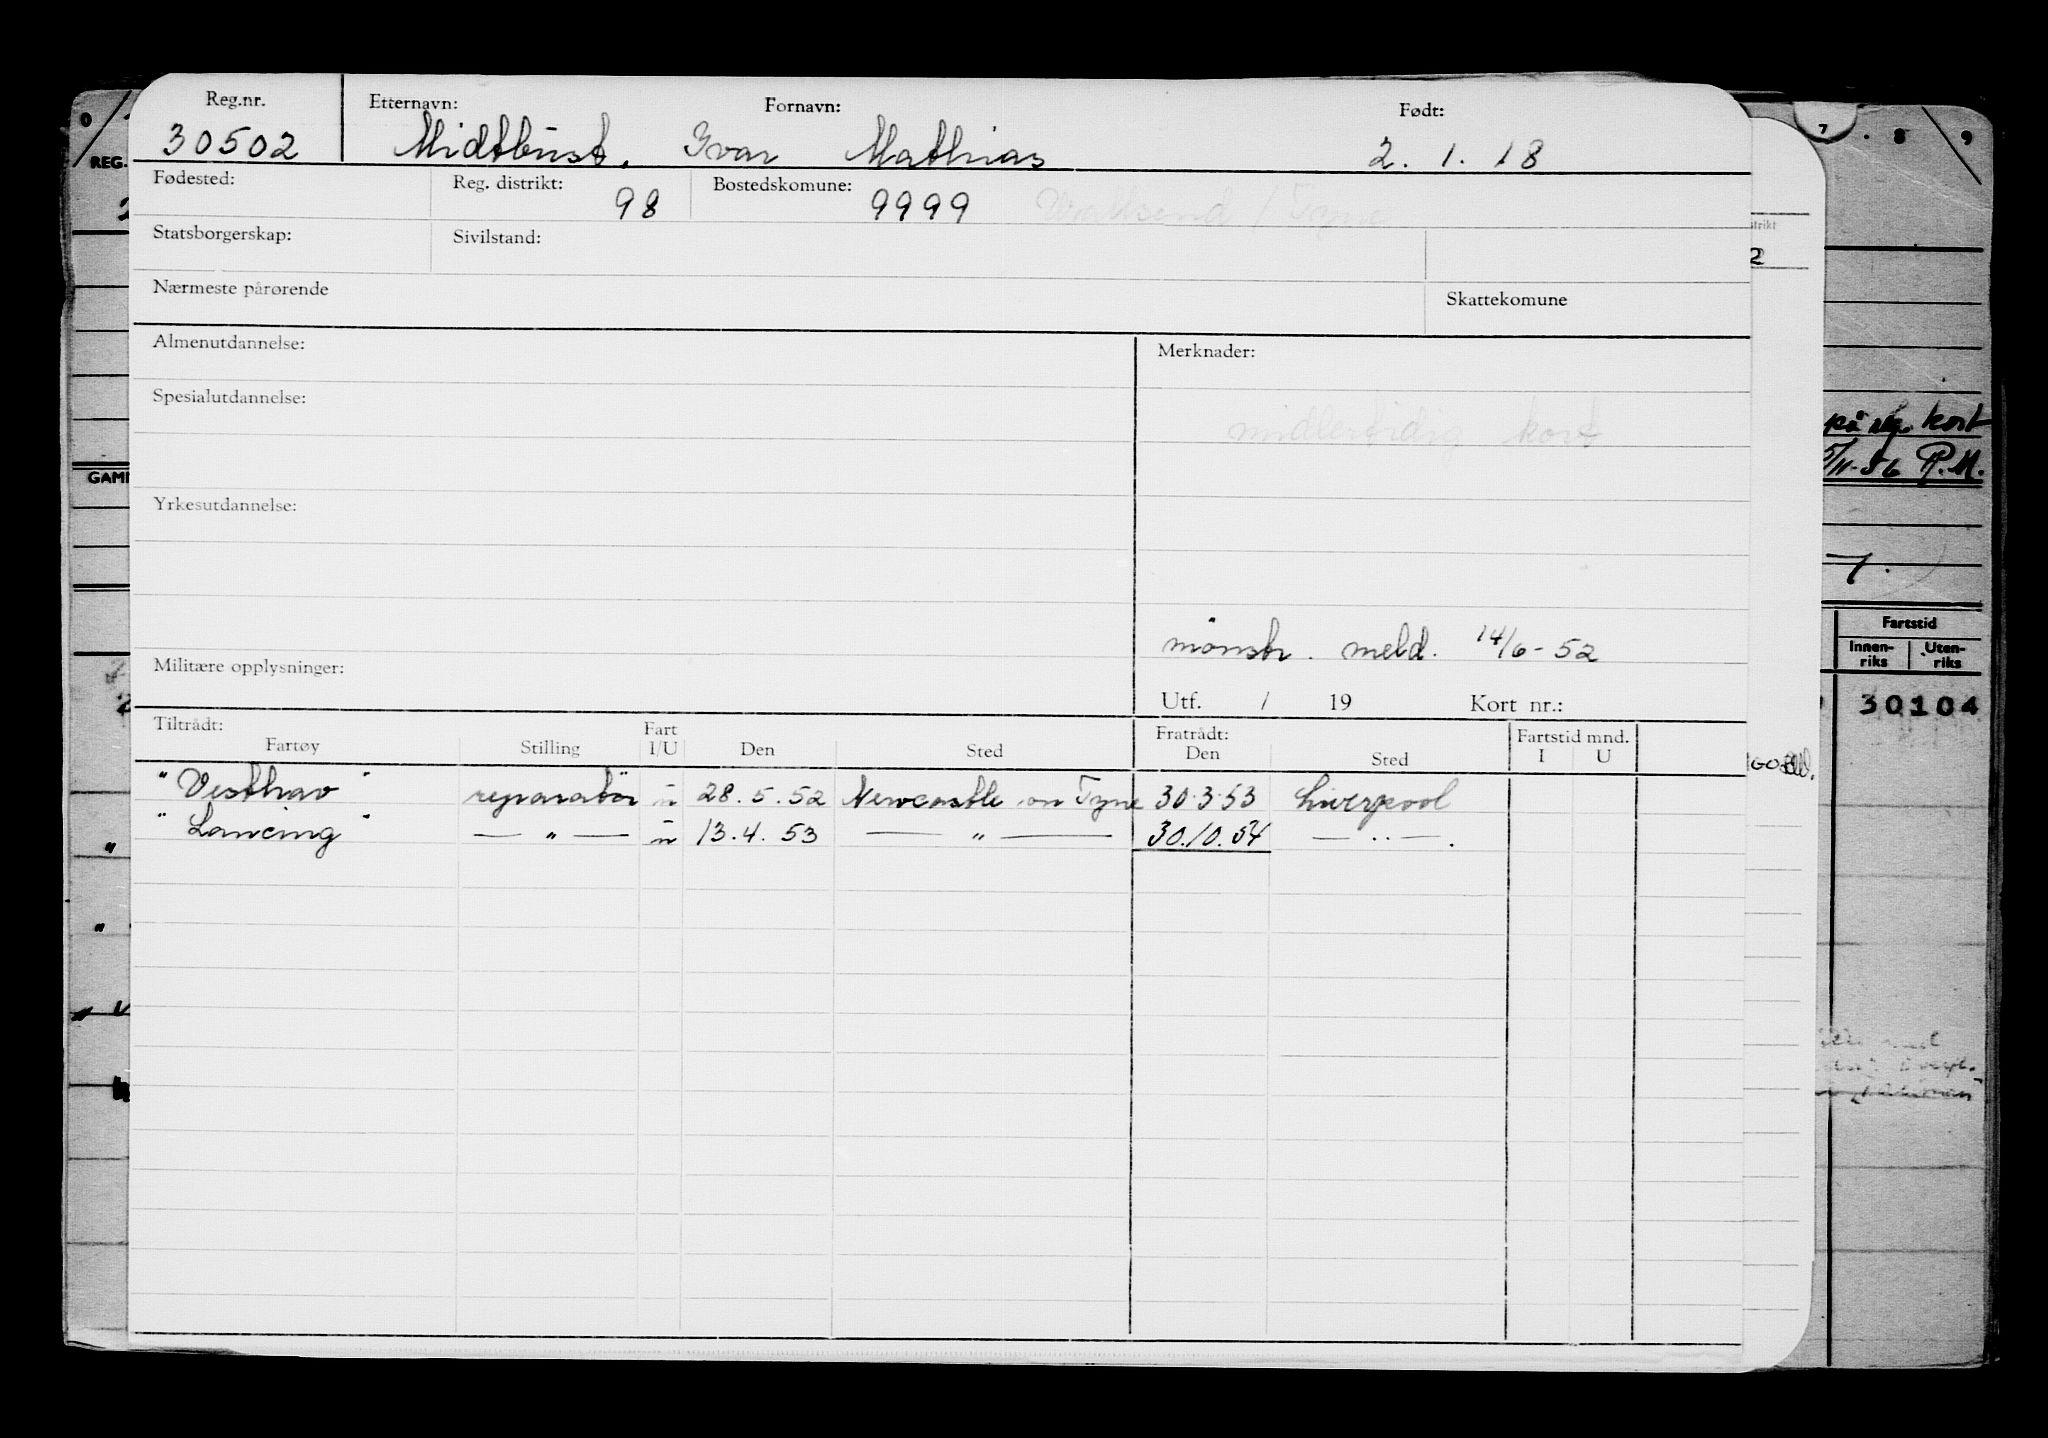 Reg.nr. Etternavn: Fornavn: Født:
30502 Midtbust, Ivar Mathias 2. 1. 18
Fødested: Reg. distrikt: 98 Bostedskomune: 9999 Wallsend / Tyne
Statsborgerskap: Sivilstand:
Nærmeste pårørende Skattekomune
Almenutdannelse: Merknader:
Spesialutdannelse:
midlertidig kort
Yrkesutdannelse:
mönstr. meld. 14/6-52
Militære opplysninger:
Utf. / 19 Kort nr.:
Tiltrådt: Fratrådt: Fartstid mnd.
Fartøy Stilling Fart I/U Den Sted Den Sted I U
"Vesthav" reparatör u 28.5.52 Newcastle on Tyne 30.3.53 Liverpool
"Lancing" — " — u 13.4.53 — " — 30.10.54 — " — .
0 7 . 8 9
REG.
trikt
2
på reg. kort
5/11-56 P.M.
GAM
Fartstid
Innen-riks Uten-riks
30104